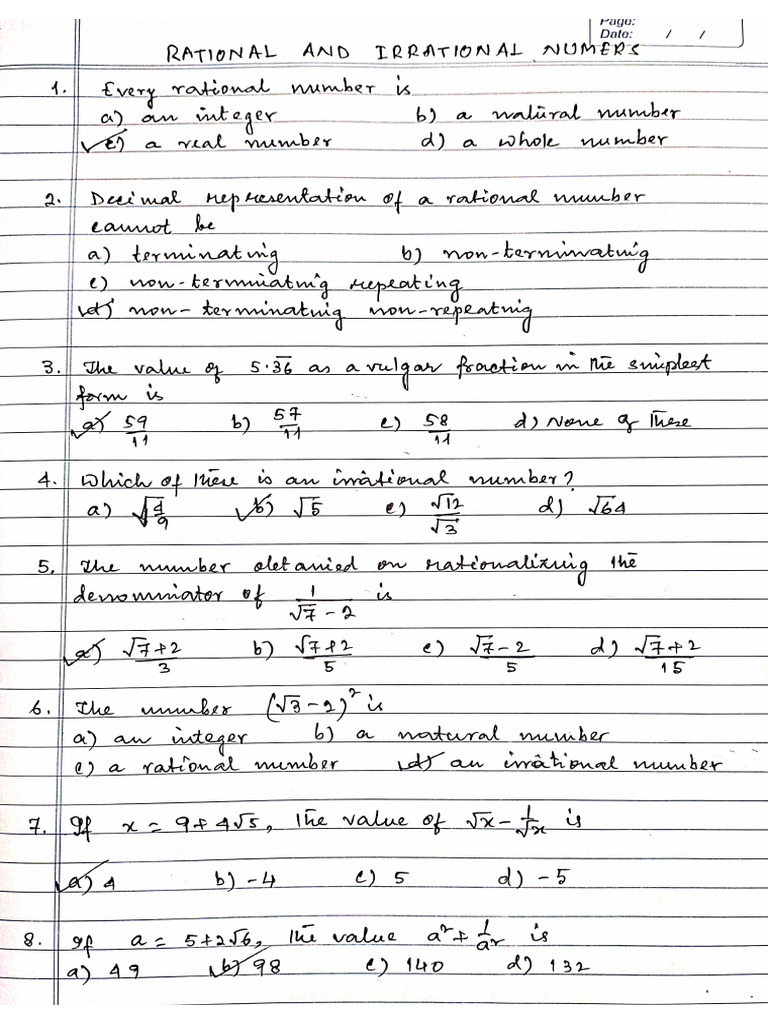 Page:
Date: / /
RATIONAL AND IRRATIONAL NUMERS
1. Every rational number is
a) an integer b) a natural number
c) a real number d) a whole number
2. Decimal representation of a rational number
cannot be
a) terminating b) non-terminating
c) non-terminating repeating
d) non-terminating non-repeating
3. The value of 5.3̅6̅ as a vulgar fraction in the simplest
form is
a) 59/11 b) 57/11 c) 58/11 d) None of these
4. Which of these is an irrational number?
a) √(4/9) b) √5 c) √12/√3 d) √64
5. The number obtained on rationalizing the
denominator of 1/(√7-2) is
a) (√7+2)/3 b) (√7+2)/5 c) (√7-2)/5 d) (√7+2)/15
6. The number (√3-2)² is
a) an integer b) a natural number
c) a rational number d) an irrational number
7. If x = 9+4√5, the value of √x - 1/√x is
a) 4 b) -4 c) 5 d) -5
8. If a = 5+2√6, the value a² + 1/a² is
a) 49 b) 98 c) 140 d) 132